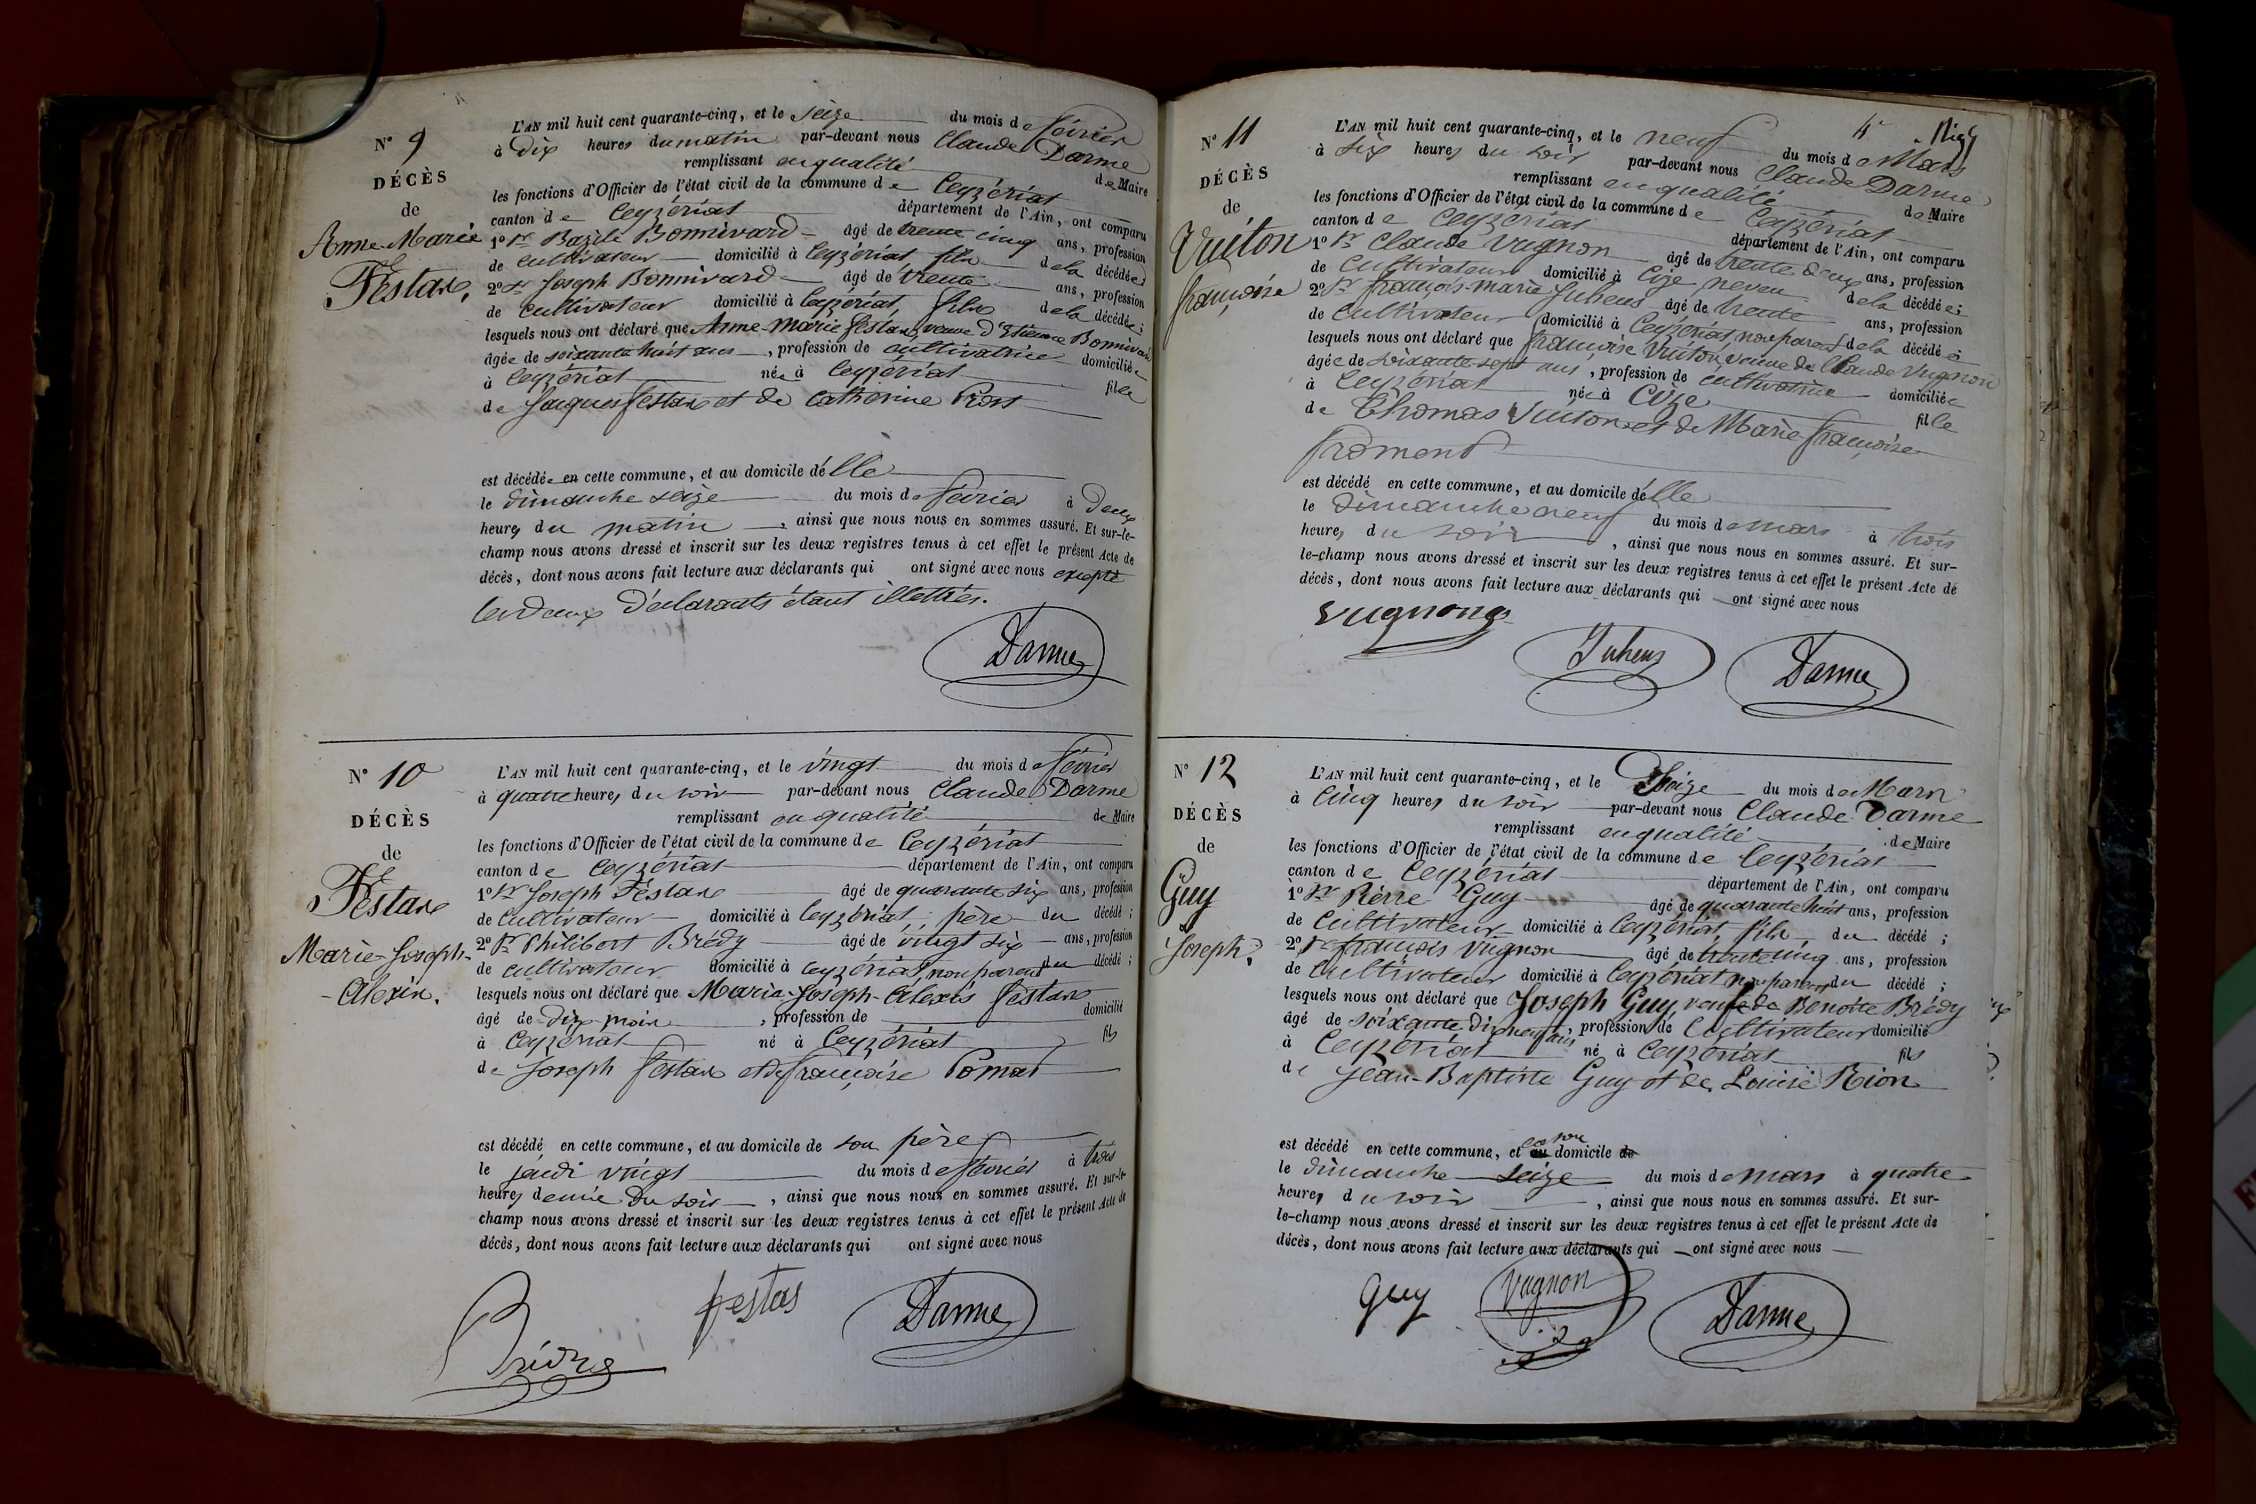 N° 9
DÉCÈS
de
Anne-Marie
Festas,
L'AN mil huit cent quarante-cinq, et le seize du mois de février
à dix heures du matin par-devant nous Claude Darme
remplissant en qualité de Maire
les fonctions d'Officier de l'état civil de la commune de Ceyzériat
canton de Ceyzériat département de l'Ain, ont comparu
1° Sr Bazile Bonnivard âgé de trente cinq ans, profession
de cultivateur domicilié à Ceyzériat, fils de la décédée;
2° Sr Joseph Bonnivard âgé de trente ans, profession
de cultivateur domicilié à Ceyzériat, fils de la décédée;
lesquels nous ont déclaré que Anne-Marie Festas, veuve d'Etienne Bonnivard
âgée de soixante huit ans, profession de cultivatrice domiciliée
à Ceyzériat née à Ceyzériat fille
de Jacques Festas et de Catherine Pront
est décédée en cette commune, et au domicile d'elle
le dimanche seize du mois de février à deux
heures du matin, ainsi que nous nous en sommes assuré. Et sur-le-
champ nous avons dressé et inscrit sur les deux registres tenus à cet effet le présent Acte de
décès, dont nous avons fait lecture aux déclarants qui ont signé avec nous excepté
les deux Déclarants étant illettrés.
Darme
N° 10
DÉCÈS
de
Festas
Marie-Joseph-
Alexis.
L'AN mil huit cent quarante-cinq, et le vingt du mois de février
à quatre heures du soir par-devant nous Claude Darme
remplissant en qualité de Maire
les fonctions d'Officier de l'état civil de la commune de Ceyzériat
canton de Ceyzériat département de l'Ain, ont comparu
1° Sr Joseph Festas âgé de quarante six ans, profession
de cultivateur domicilié à Ceyzériat, père du décédé;
2° Sr Philibert Brédy âgé de vingt six ans, profession
de cultivateur domicilié à Ceyzériat, non parent du décédé;
lesquels nous ont déclaré que Marie-Joseph-Alexis Festas
âgé de dix mois, profession de domicilié
à Ceyzériat né à Ceyzériat fils
de Joseph Festas et de françoise Pomat
est décédé en cette commune, et au domicile de son père
le jeudi vingt du mois de février à trois
heures demie du soir, ainsi que nous nous en sommes assuré. Et sur-le-
champ nous avons dressé et inscrit sur les deux registres tenus à cet effet le présent Acte de
décès, dont nous avons fait lecture aux déclarants qui ont signé avec nous
festas
Darme
N° 11
DÉCÈS
de
Vuiton
françoise
L'AN mil huit cent quarante-cinq, et le neuf du mois de Mars
à six heures du soir par-devant nous Claude Darme
remplissant en qualité de Maire
les fonctions d'Officier de l'état civil de la commune de Ceyzériat
canton de Ceyzériat département de l'Ain, ont comparu
1° Sr Claude Vugnon âgé de trente deux ans, profession
de cultivateur domicilié à Cize neveu de la décédée;
2° Sr françois-marie Juhens âgé de trente ans, profession
de cultivateur domicilié à Ceyzériat, non parent de la décédée
lesquels nous ont déclaré que françoise Vuiton, veuve de Claude Vugnon
âgée de soixante sept ans, profession de cultivatrice domiciliée
à Ceyzériat née à Cize fille
de Thomas Vuiton et de Marie françoise
froment
est décédé en cette commune, et au domicile d'elle
le dimanche neuf du mois de mars à trois
heures du soir, ainsi que nous nous en sommes assuré. Et sur-
le-champ nous avons dressé et inscrit sur les deux registres tenus à cet effet le présent Acte de
décès, dont nous avons fait lecture aux déclarants qui ont signé avec nous
Vugnong
Juhens
Darme
N° 12
DÉCÈS
de
Guy
Joseph.
L'AN mil huit cent quarante-cinq, et le Seize du mois de Mars
à cinq heures du soir par-devant nous Claude Darme
remplissant en qualité de Maire
les fonctions d'Officier de l'état civil de la commune de Ceyzériat
canton de Ceyzériat département de l'Ain, ont comparu
1° Sr Pierre Guy âgé de quarante huit ans, profession
de cultivateur domicilié à Ceyzériat, fils du décédé;
2° Sr françois Vugnon âgé de trente cinq ans, profession
de cultivateur domicilié à Ceyzériat non parent du décédé;
lesquels nous ont déclaré que Joseph Guy, veuf de Benoite Brédy
âgé de soixante dix neuf ans, profession de Cultivateur domicilié
à Ceyzériat né à Ceyzériat fils
de Jean-Baptiste Guy et de Louise Rion
est décédé en cette commune, et en son domicile
le dimanche seize du mois de mars à quatre
heures du soir, ainsi que nous nous en sommes assuré. Et sur-
le-champ nous avons dressé et inscrit sur les deux registres tenus à cet effet le présent Acte de
décès, dont nous avons fait lecture aux déclarants qui ont signé avec nous
Guy
Vugnon
Darme